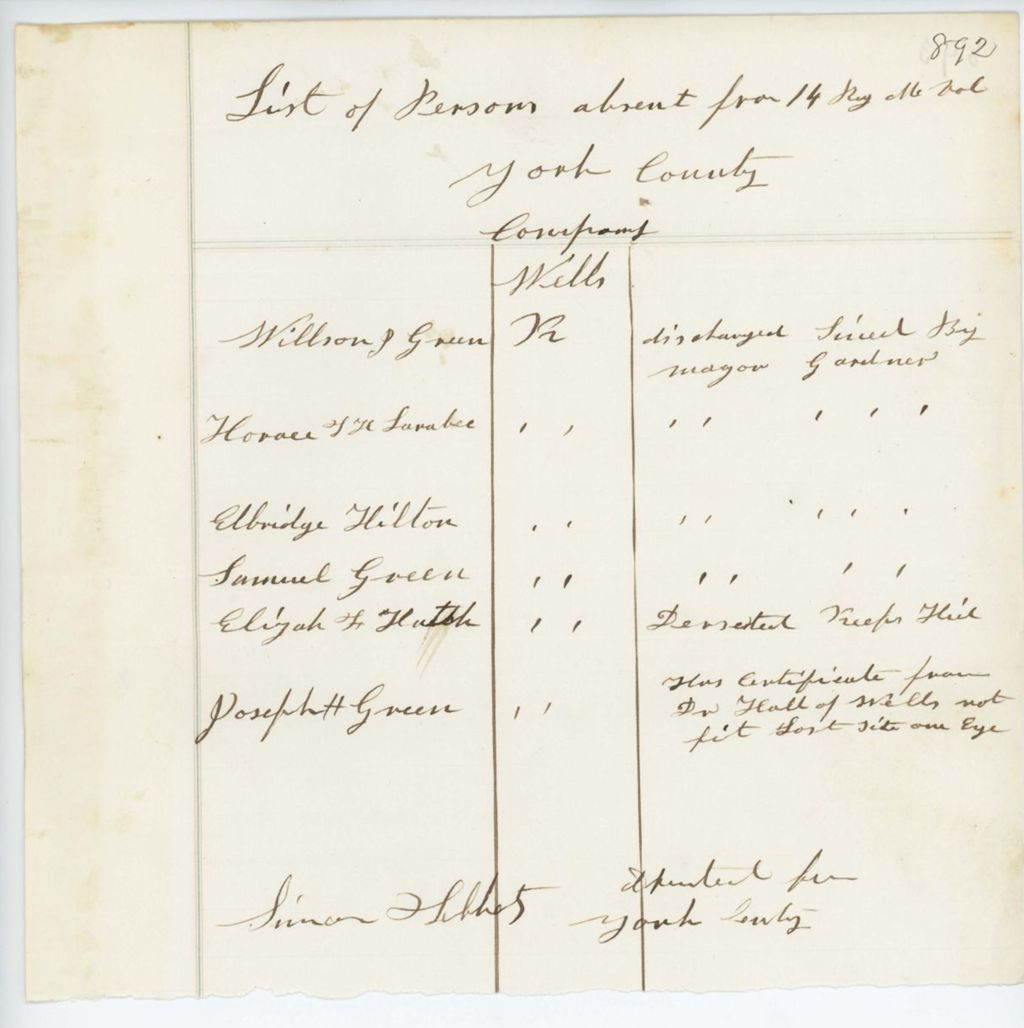 892
List of Persons absent from 14 Reg Me Vol
York County
Company
Wells
Willson J Green K discharged Sined By
mayor Gardner
Horace T H Larabee , , , , , , ,
Elbridge Hilton , , , , , , ,
Samuel Green , , , , , ,
Elijah F Hatch , , Dersected Keeps Hid
Has Certificate from
Joseph H Green , , Dr Hall of Wells not
fit Lost Site one Eye
deputed for
Simon York Conty